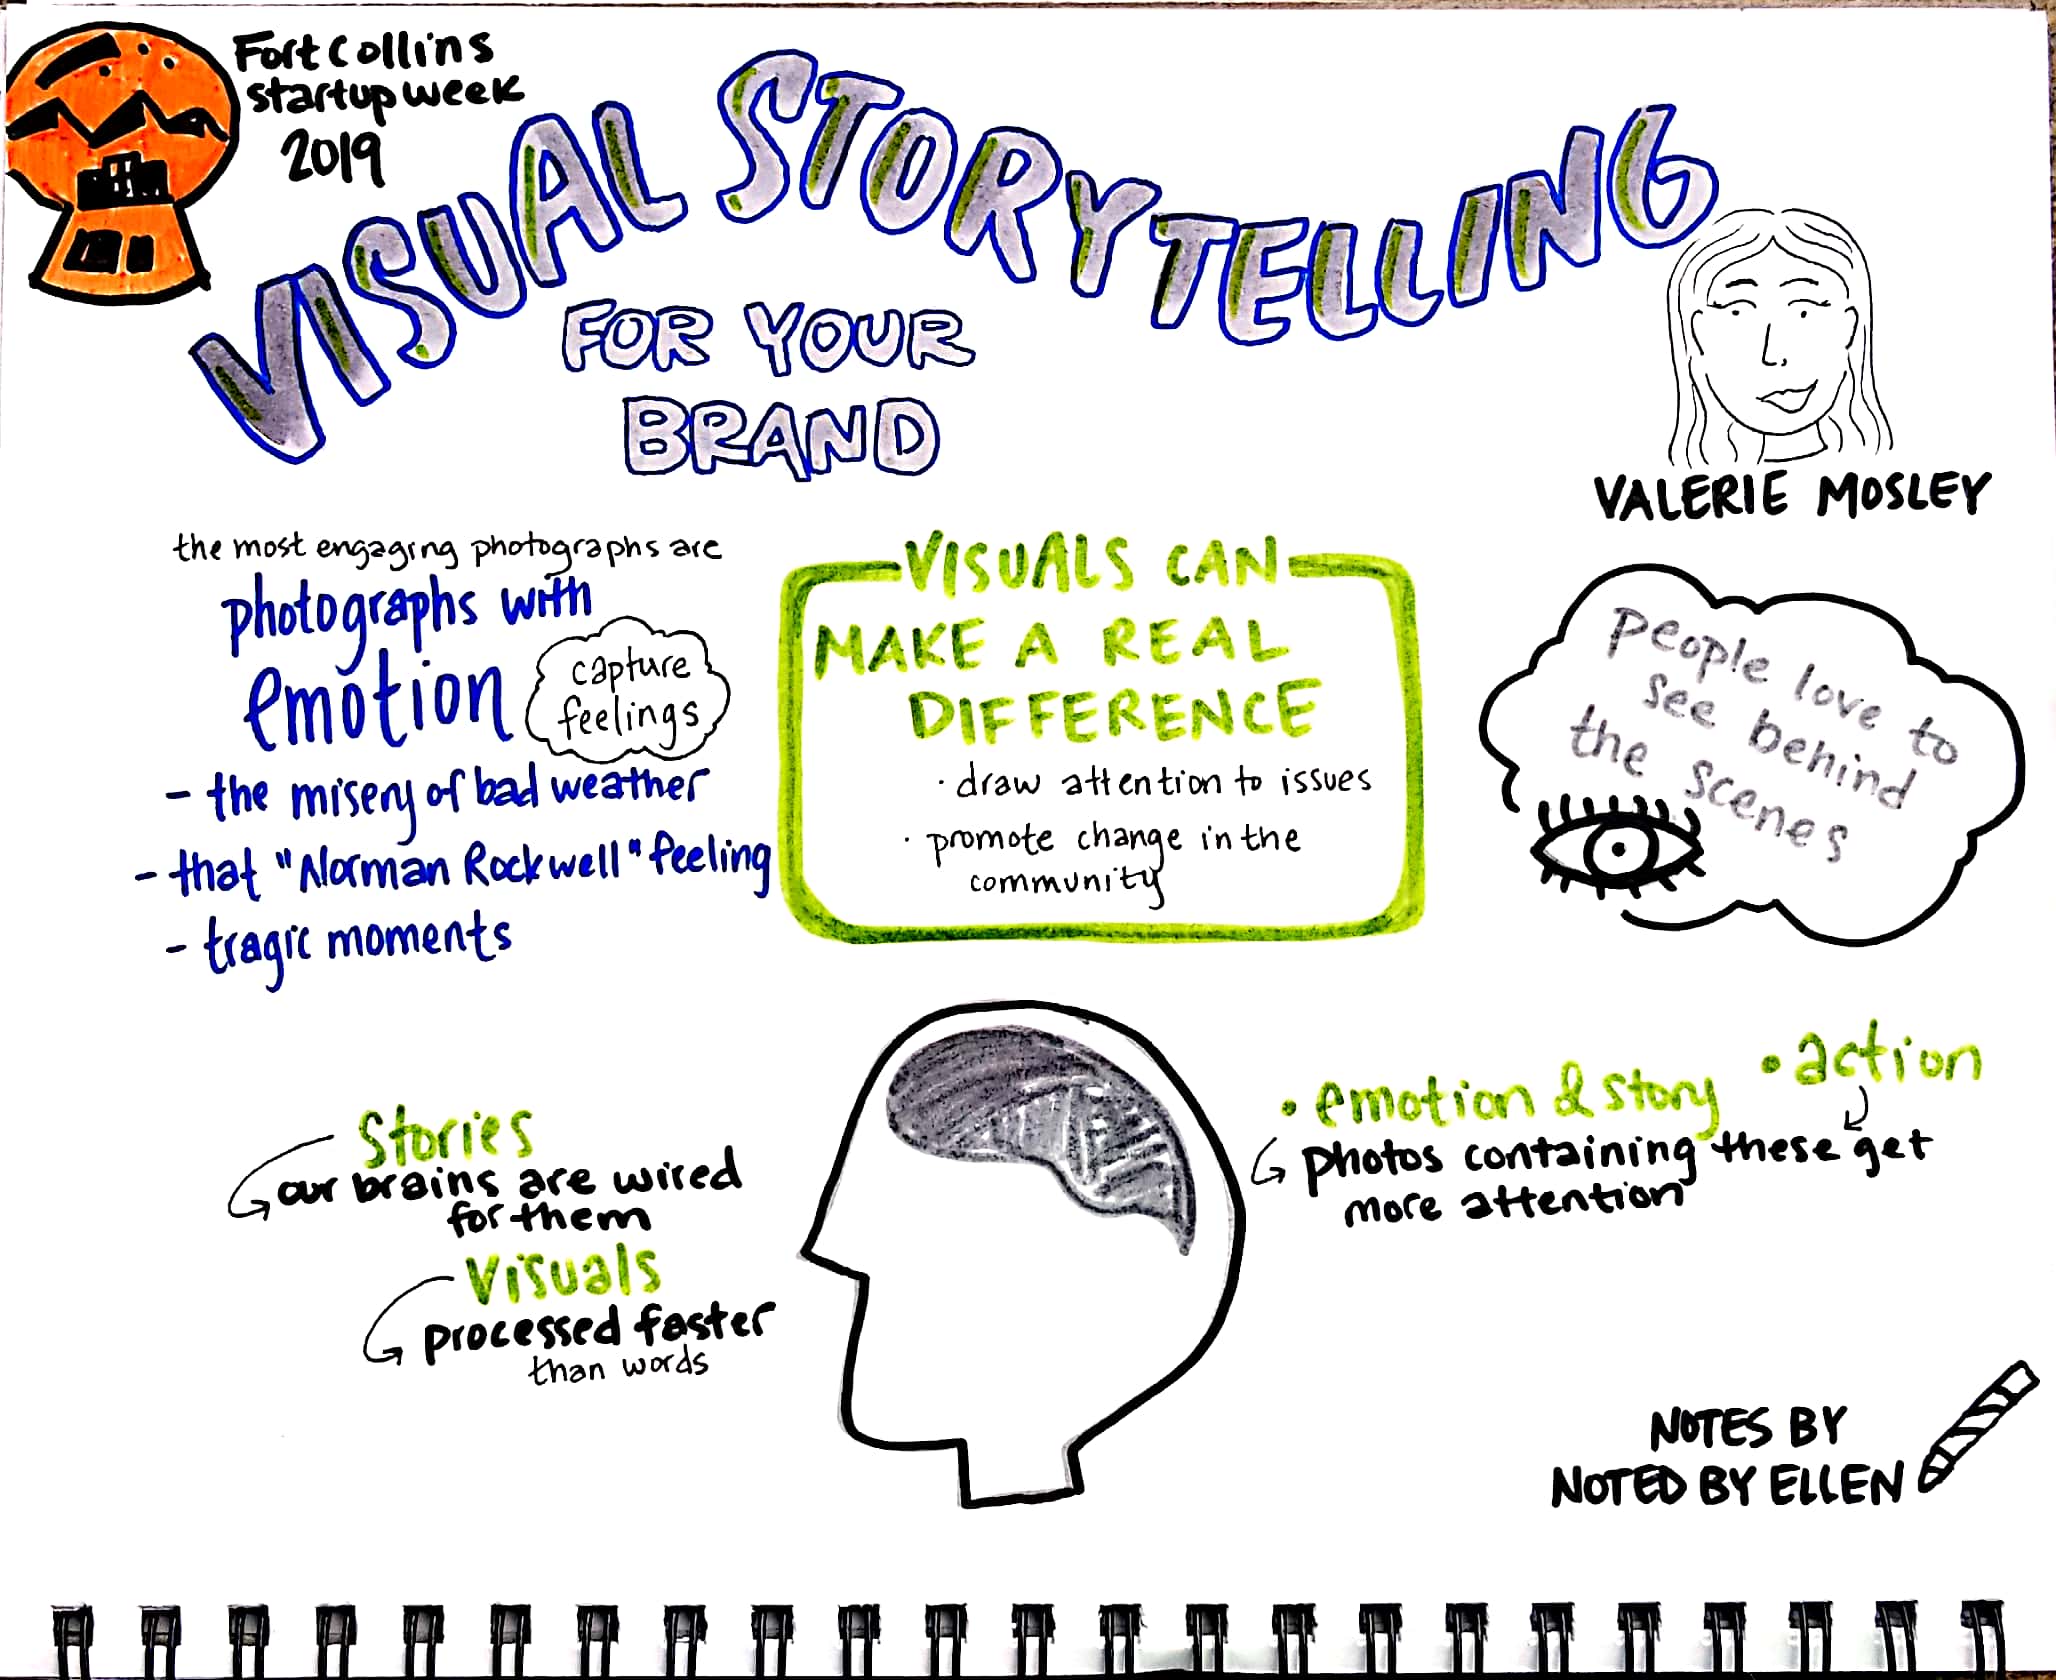 Fort Collins
startup week
2019
VISUAL STORYTELLING
FOR YOUR
BRAND
VALERIE MOSLEY
the most engaging photographs are
photographs with
emotion
capture
feelings
- the misery of bad weather
- that "Norman Rockwell" feeling
- tragic moments
VISUALS CAN
MAKE A REAL
DIFFERENCE
· draw attention to issues
· promote change in the
community
people love to
see behind
the scenes
Stories
our brains are wired
for them
Visuals
processed faster
than words
• emotion & story • action
photos containing these get
more attention
NOTES BY
NOTED BY ELLEN